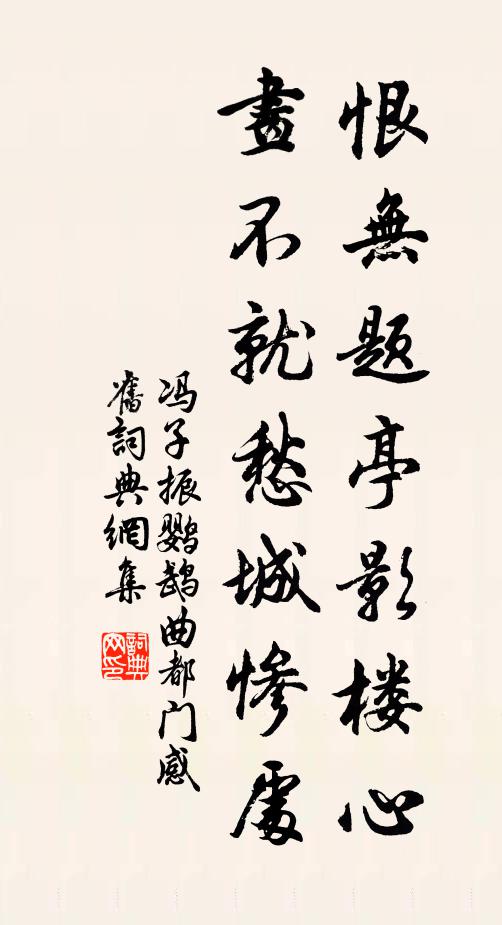 恨無题亭影楼心
畫不就愁城慘處
冯子振鹦鹉曲都门感
舊詞典網集
詞典网印